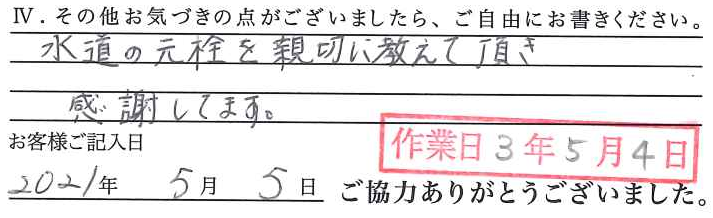 Ⅳ．その他お気づきの点がございましたら、ご自由にお書きください。
水道の元栓を親切に教えて頂き
感謝してます。
お客様ご記入日
作業日 3年5月4日
2021年 5月 5日 ご協力ありがとうございました。